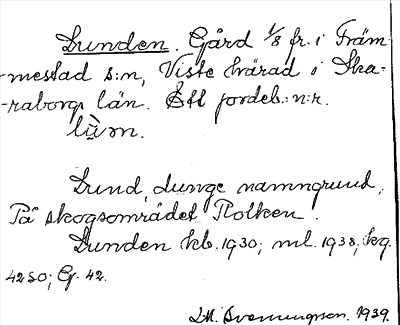 Lunden. Gård 1/8 fr. i Främ-
mestad s:n, Viste härad i Ska-
raborgs län. Ett jordeb.:n:r.
Lund, dunge namngrund,
På skogsområdet Rolken.
Lunden kb. 1930; ml. 1938; kg.
4250; G. 42.
1939.